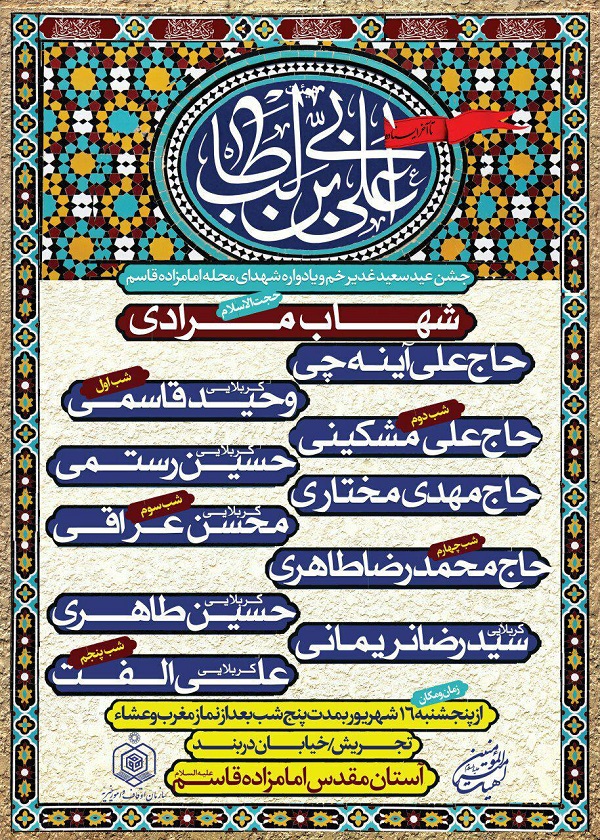 علی بن ابی طالب
تا آخر ایستاده‌ایم
جشن عید سعید غدیر خم و یادواره شهدای محله امامزاده قاسم
حجت‌الاسلام
شهاب مرادی
حاج علی آینه چی
شب اول
کربلایی
وحید قاسمی
شب دوم
حاج علی مشکینی
کربلایی
حسین رستمی
حاج مهدی مختاری
شب سوم
کربلایی
محسن عراقی
شب چهارم
حاج محمدرضا طاهری
کربلایی
حسین طاهری
کربلایی
سیدرضا نریمانی
شب پنجم
کربلایی
علی الفت
زمان و مکان
از پنجشنبه ۱۶ شهریور بمدت پنج شب بعد از نماز مغرب و عشاء
تجریش/خیابان دربند
آستان مقدس امامزاده قاسم علیه السلام
سازمان اوقاف و امور خیریه